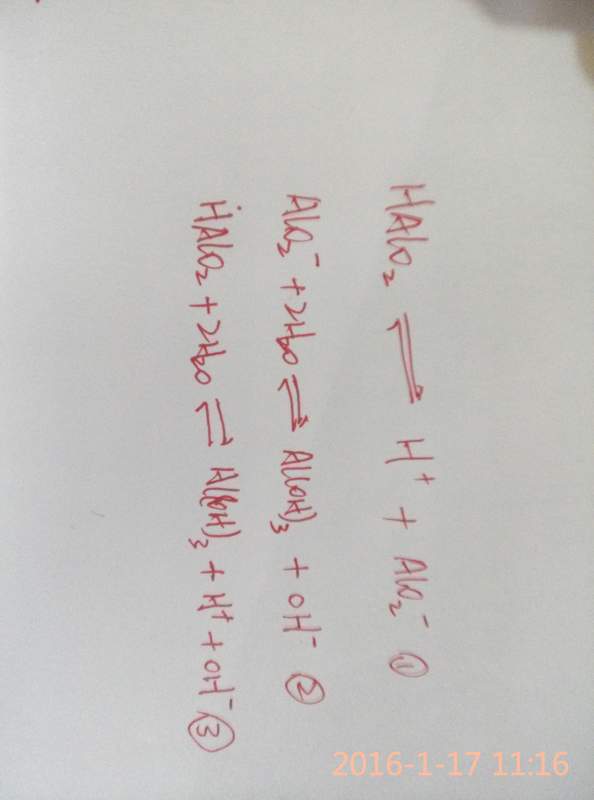 HAlO₂ ⇌ H⁺ + AlO₂⁻ ①
AlO₂⁻ + 2H₂O ⇌ Al(OH)₃ + OH⁻ ②
HAlO₂ + 2H₂O ⇌ Al(OH)₃ + H⁺ + OH⁻ ③
2016-1-17 11:16